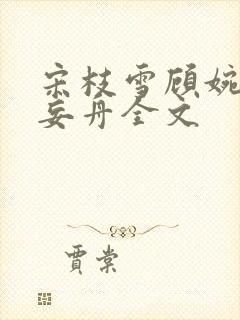 宋枝雪顾婉
妄丹全文
贾棠